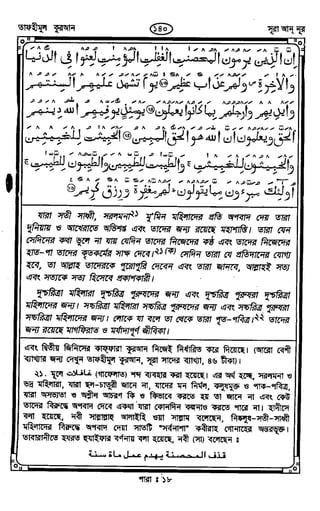 তাফহীমুল কুরআন
১৪০
সূরা আন্ নূর
إن الذين يرمون المحصنت الغفلت المؤمنت لعنوا في الدنيا
والآخرة ولهم عذاب عظيم يوم تشهد عليهم السنتهم
وايديهم وارجلهم بما كانوا يعملون يومئذ يوفيهم الله دينهم
الحق ويعلمون ان الله هو الحق المبين الخبيثت للخبيثين
والخبيثون للخبيثت والطيبت للطيبين والطيبون للطيبت
اولئك مبرءون مما يقولون لهم مغفرة ورزق كريم
যারা সতী সাধ্বী, সরলমনা২১ মু'মিন মহিলাদের প্রতি অপবাদ দেয় তারা
দুনিয়ায় ও আখেরাতে অভিশপ্ত এবং তাদের জন্য রয়েছে মহাশাস্তি। তারা যেন
সেদিনের কথা ভুলে না যায় যেদিন তাদের নিজেদের কণ্ঠ এবং তাদের নিজেদের
হাত-পা তাদের কৃতকর্মের সাক্ষ দেবে।২১(ক) সেদিন তারা যে প্রতিদানের যোগ্য
হবে, তা আল্লাহ তাদেরকে পুরোপুরি দেবেন এবং তারা জানবে, আল্লাহই সত্য
এবং সত্যকে সত্য হিসেবে প্রকাশকারী।
দুশ্চরিত্রা মহিলারা দুশ্চরিত্র পুরুষদের জন্য এবং দুশ্চরিত্র পুরুষরা দুশ্চরিত্রা
মহিলাদের জন্য। সচ্চরিত্রা মহিলারা সচ্চরিত্র পুরুষদের জন্য এবং সচ্চরিত্র পুরুষরা
সচ্চরিত্রা মহিলাদের জন্য। লোকে যা বলে তা থেকে তারা পূত-পবিত্র।২২ তাদের
জন্য রয়েছে মাগফিরাত ও মর্যাদাপূর্ণ জীবিকা।
এবং দ্বিতীয় জিনিসের কাফ্ফারা কুরআন নিজেই নির্ধারিত করে দিয়েছে। (আরো বেশী
ব্যাখ্যার জন্য দেখুন তাফহীমুল কুরআন, সূরা সাদের ব্যাখ্যা, ৪৬ টীকা)।
২১. মূলে غافلات (গাফেলাত) শব্দ ব্যবহার করা হয়েছে। এর অর্থ হচ্ছে, সরলমনা ও
ভদ্র মহিলারা, যারা ছল-চাতুরী জানে না, যাদের মন নির্মল, কলুষমুক্ত ও পাক-পবিত্র,
যারা অসভ্যতা ও অশ্লীল আচরণ কি ও কিভাবে করতে হয় তা জানে না এবং কেউ
তাদের বিরুদ্ধে অপবাদ দেবে একথা যারা কোনদিন কল্পনাও করতে পারে না। হাদীসে
বলা হয়েছে, নবী সাল্লাল্লাহু আলাইহি ওয়া সাল্লাম বলেছেন, নিষ্কলুষ-সতী-সাধ্বী
মহিলাদের বিরুদ্ধে অপবাদ দেয়া সাতটি "সর্বনাশা" কবীরাহ গোনাহের অন্তরভুক্ত।
তাবারানীতে হযরত হুযাইফার বর্ণনায় বলা হয়েছে, নবী (সা) বলেছেন :
قذف المحصنة يهدم عمل مأة سنة
পারা : ১৮